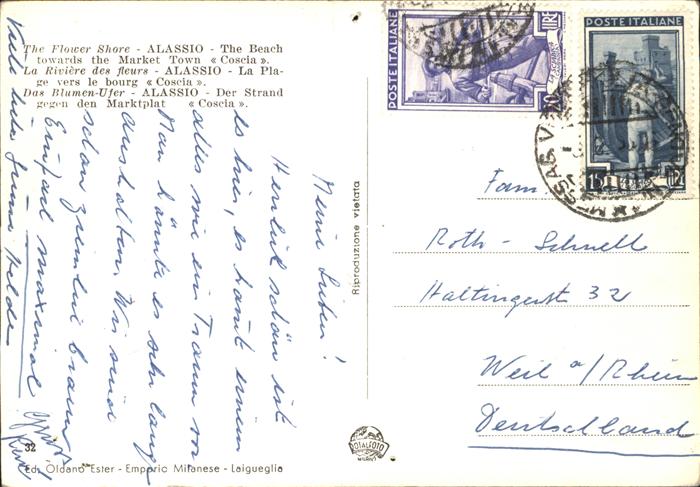 The Flower Shore - ALASSIO - The Beach
towards the Market Town « Coscia ».
La Rivière des fleurs - ALASSIO - La Pla-
ge vers le bourg « Coscia ».
Das Blumen-Ufer - ALASSIO - Der Strand
gegen den Marktplat « Coscia ».
Meine Lieben!
Herrlich schön ist
es hier, es kommt einem
alles wie ein Traum vor
Man könnte es sehr lange
aushalten. Wir sind
schon ziemlich braun
Einfach maximal
Viele liebe Grüsse
Riproduzione vietata
POSTE ITALIANE
LIRE 20
POSTE ITALIANE
15 LIRE
Fam
Roth - Schnell
Haltingerstr 32
Weil a/Rhein
Deutschland
32
Ed. Oldano Ester - Emporio Milanese - Laigueglia
DOTALFOTO
MILANO